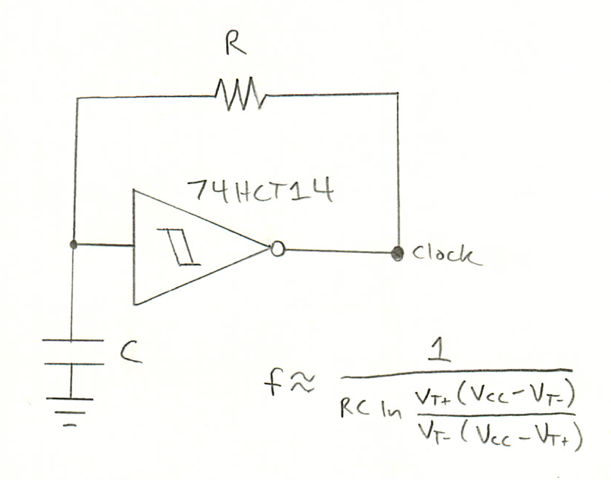 R
74HCT14
Clock
C
f ≈ 1 / (RC ln (V_T+ (Vcc - V_T-)) / (V_T- (Vcc - V_T+)))